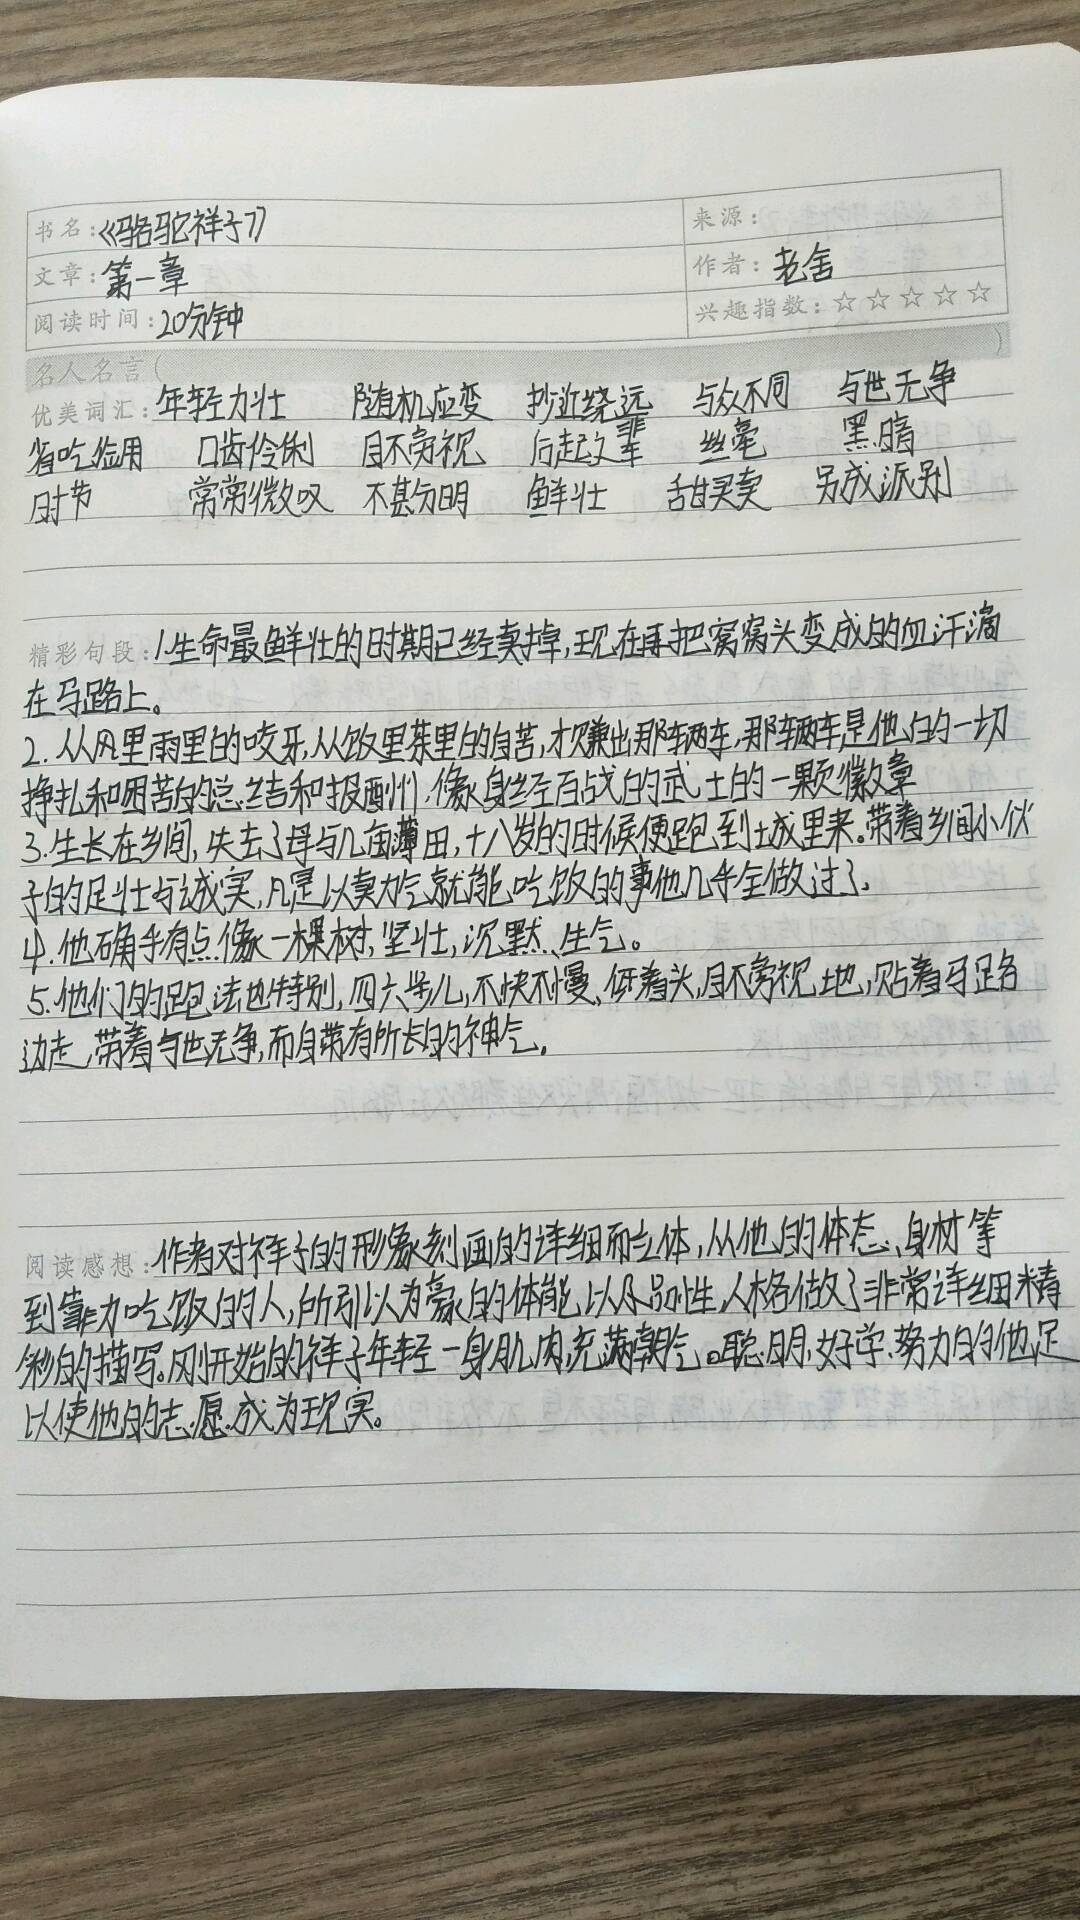 书名：《骆驼祥子》
来源：
文章：第一章
作者：老舍
阅读时间：20分钟
兴趣指数：☆☆☆☆☆
名人名言（ ）
优美词汇：年轻力壮 随机应变 抄近绕远 与众不同 与世无争
省吃俭用 口齿伶俐 目不旁视 后起之辈 丝毫 黑暗
时节 常常微叹 不甚分明 鲜壮 甜买卖 另成派别
精彩句段：1.生命最鲜壮的时期已经卖掉，现在再把窝窝头变成的血汗滴
在马路上。
2.从风里雨里的咬牙，从饭里茶里的自苦，才赚出那辆车，那辆车是他的一切
挣扎和困苦的总结和报酬州，像身经百战的武士的一颗徽章
3.生长在乡间，失去了母与几亩薄田，十八岁的时候便跑到城里来。带着乡间小伙
子的足壮与诚实，凡是以卖力气就能吃饭的事他几乎全做过了。
4.他确乎有点像一棵树，坚壮，沉默、生气。
5.他们的跑法也特别，四六步儿，不快不慢、低着头，目不旁视地，贴着马路
边走，带着与世无争，而自带有所长的神气。
阅读感想：作者对祥子的形象刻画的详细而立体，从他的体态、身材等
到靠力吃饭的人，所引以为豪的体能以及别性，人格做了非常详细精
彩的描写。刚开始的祥子年轻一身肌肉，充满朝气。聪明，好学、努力的他，足
以使他的志愿成为现实。